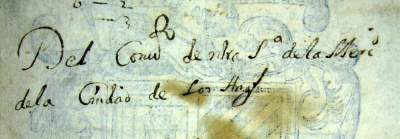 6 — 2
— 3
Del Convto de nra Sa de la Merd
de la Ciudad de Los Angs